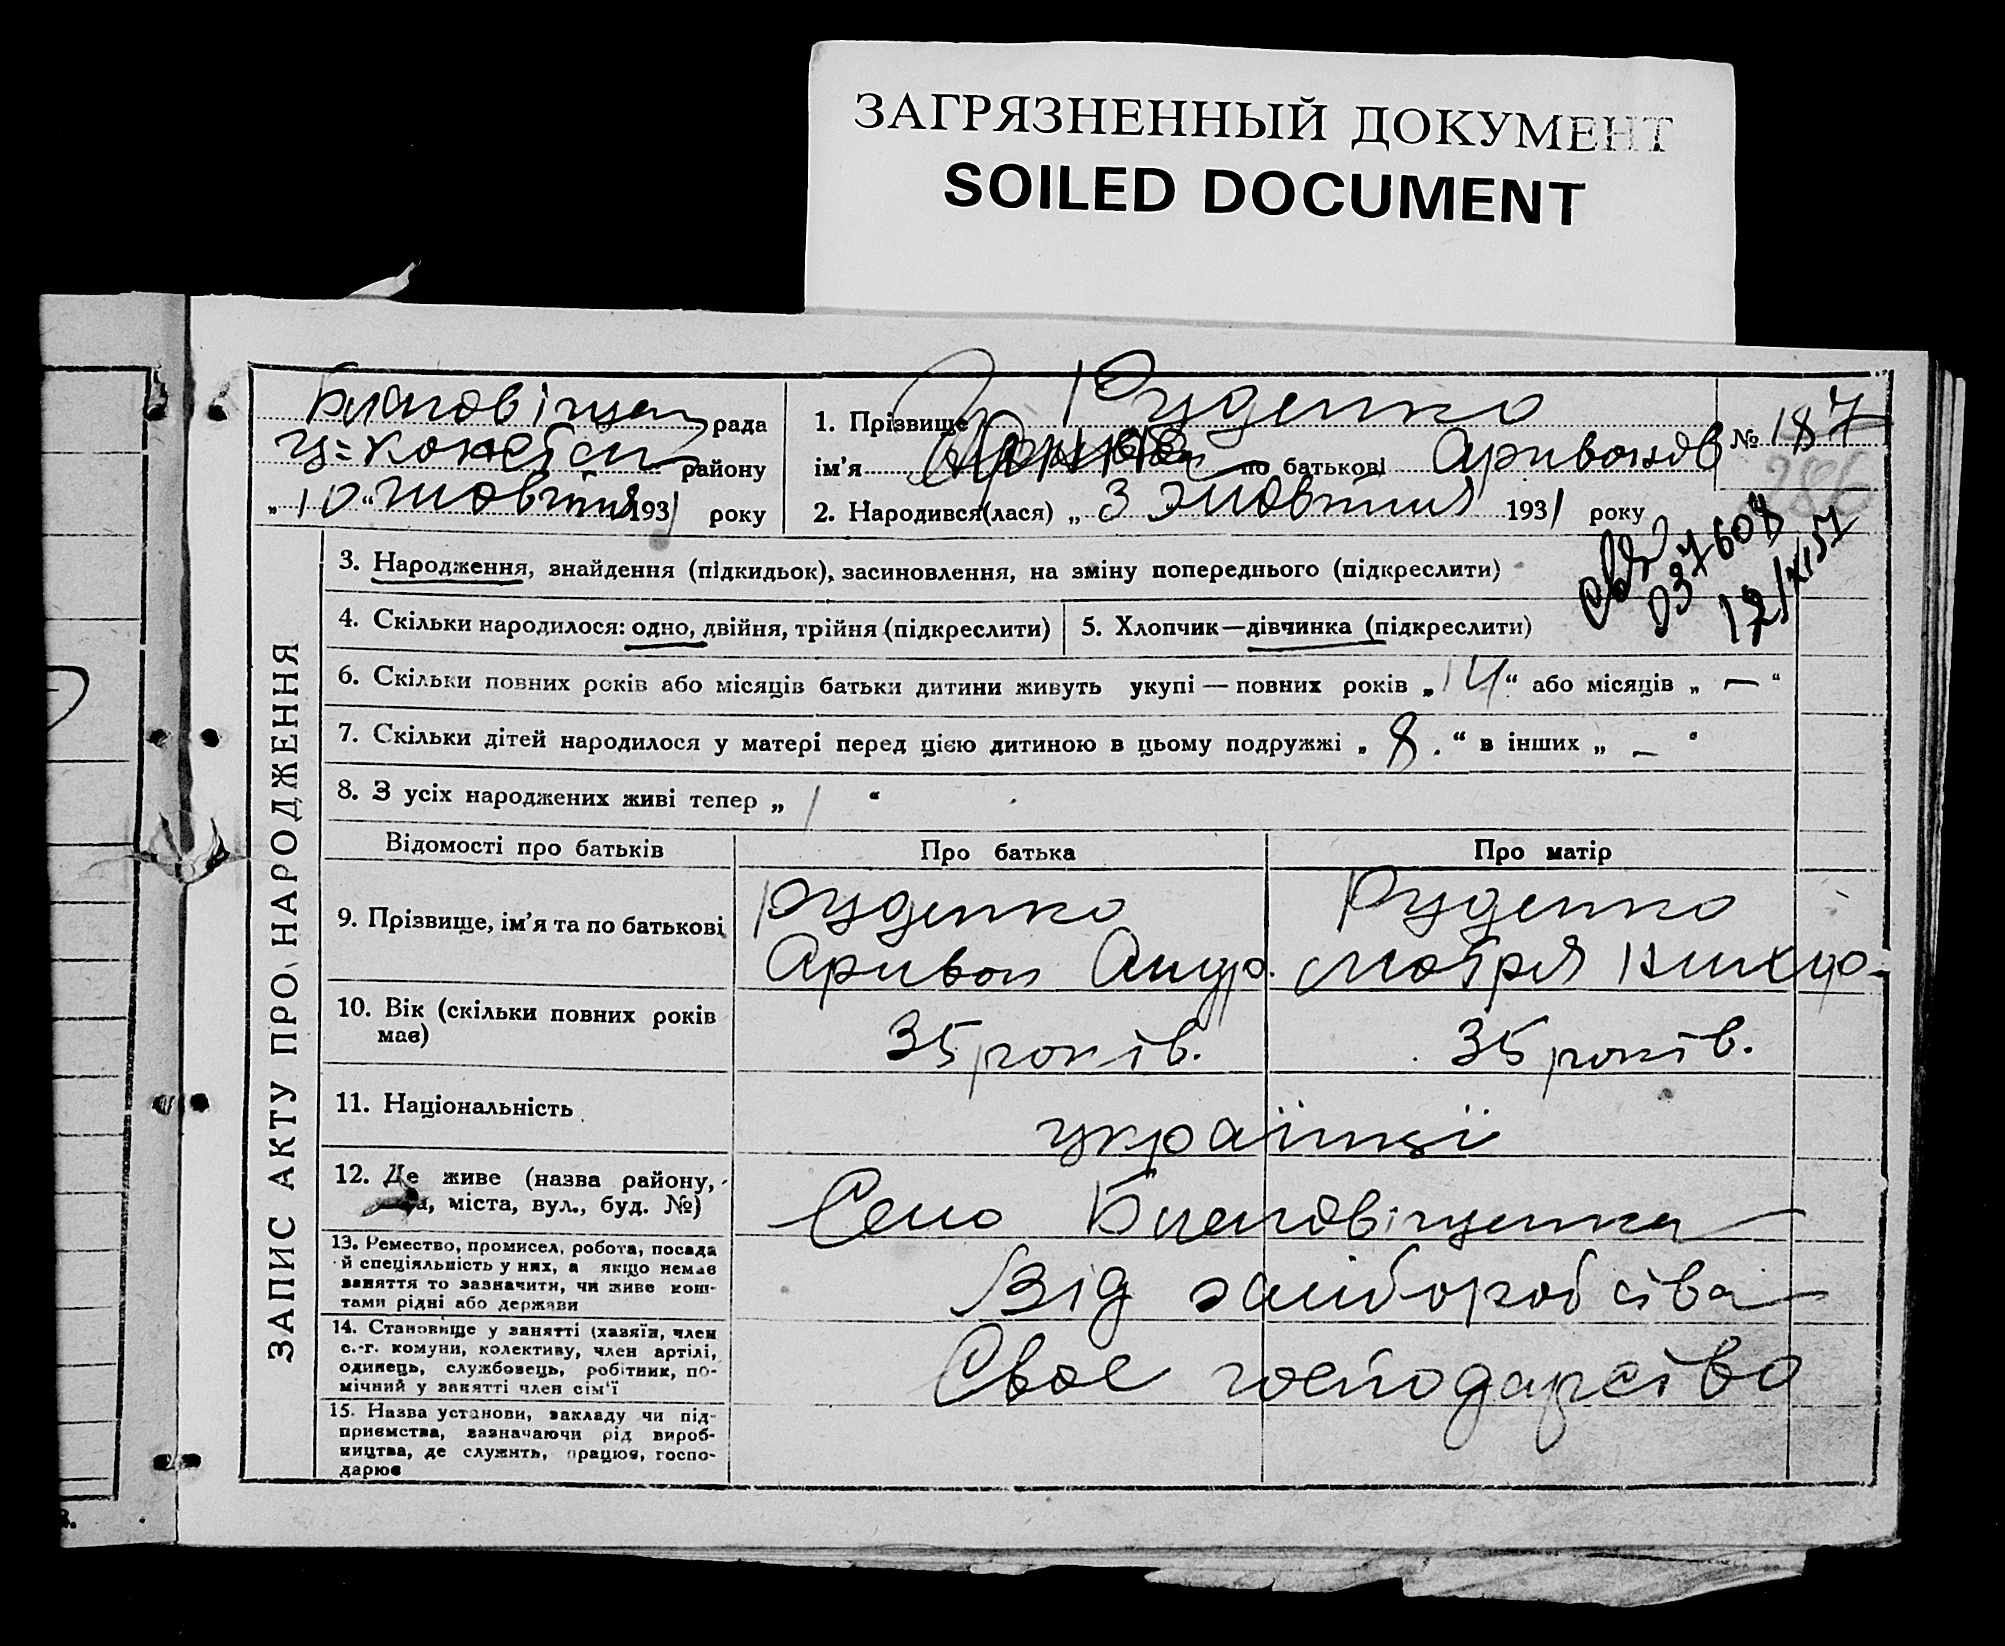 ЗАГРЯЗНЕННЫЙ ДОКУМЕНТ
SOILED DOCUMENT
рада
району
„ 10 “ жовтня 1931 року
1. Прізвище Руденко
ім’я по батькові Аривонов
2. Народився(лася) „ 3 жовтня 1931 року
№ 187
286
037608
ЗАПИС АКТУ ПРО НАРОДЖЕННЯ
3. Народження, знайдення (підкидьок), засиновлення, на зміну попереднього (підкреслити)
4. Скільки народилося: одно, двійня, трійня (підкреслити)
5. Хлопчик—дівчинка (підкреслити)
6. Скільки повних років або місяців батьки дитини живуть укупі — повних років „ 14 “ або місяців „ — “
7. Скільки дітей народилося у матері перед цією дитиною в цьому подружжі „ 8. “ в інших „ — “
8. З усіх народжених живі тепер „ 1 “
Відомості про батьків
Про батька
Про матір
9. Прізвище, ім’я та по батькові
Руденко
Аривон Андр.
Руденко
Мотря
10. Вік (скільки повних років
має)
35 років.
35 років.
11. Національність
українці
12. Де живе (назва району,
міста, вул., буд. №)
Село Благовіщенка
13. Ремество, промисел, робота, посада
й спеціяльність у них, а якщо немає
заняття то зазначити, чи живе кош-
тами рідні або держави
Від хліборобства
14. Становище у занятті (хазяїн, член
с.-г. комуни, колективу, член артілі,
одинець, службовець, робітник, по-
мічний у занятті член сім’ї
Своє господарство
15. Назва установи, закладу чи під-
приємства, зазначаючи рід вироб-
ництва, де служить, працює, госпо-
дарює